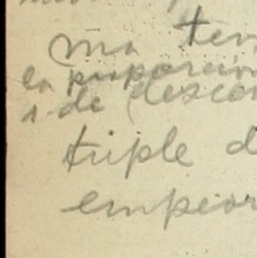 ma ten
la proporción
1 de descon
triple d
empeor